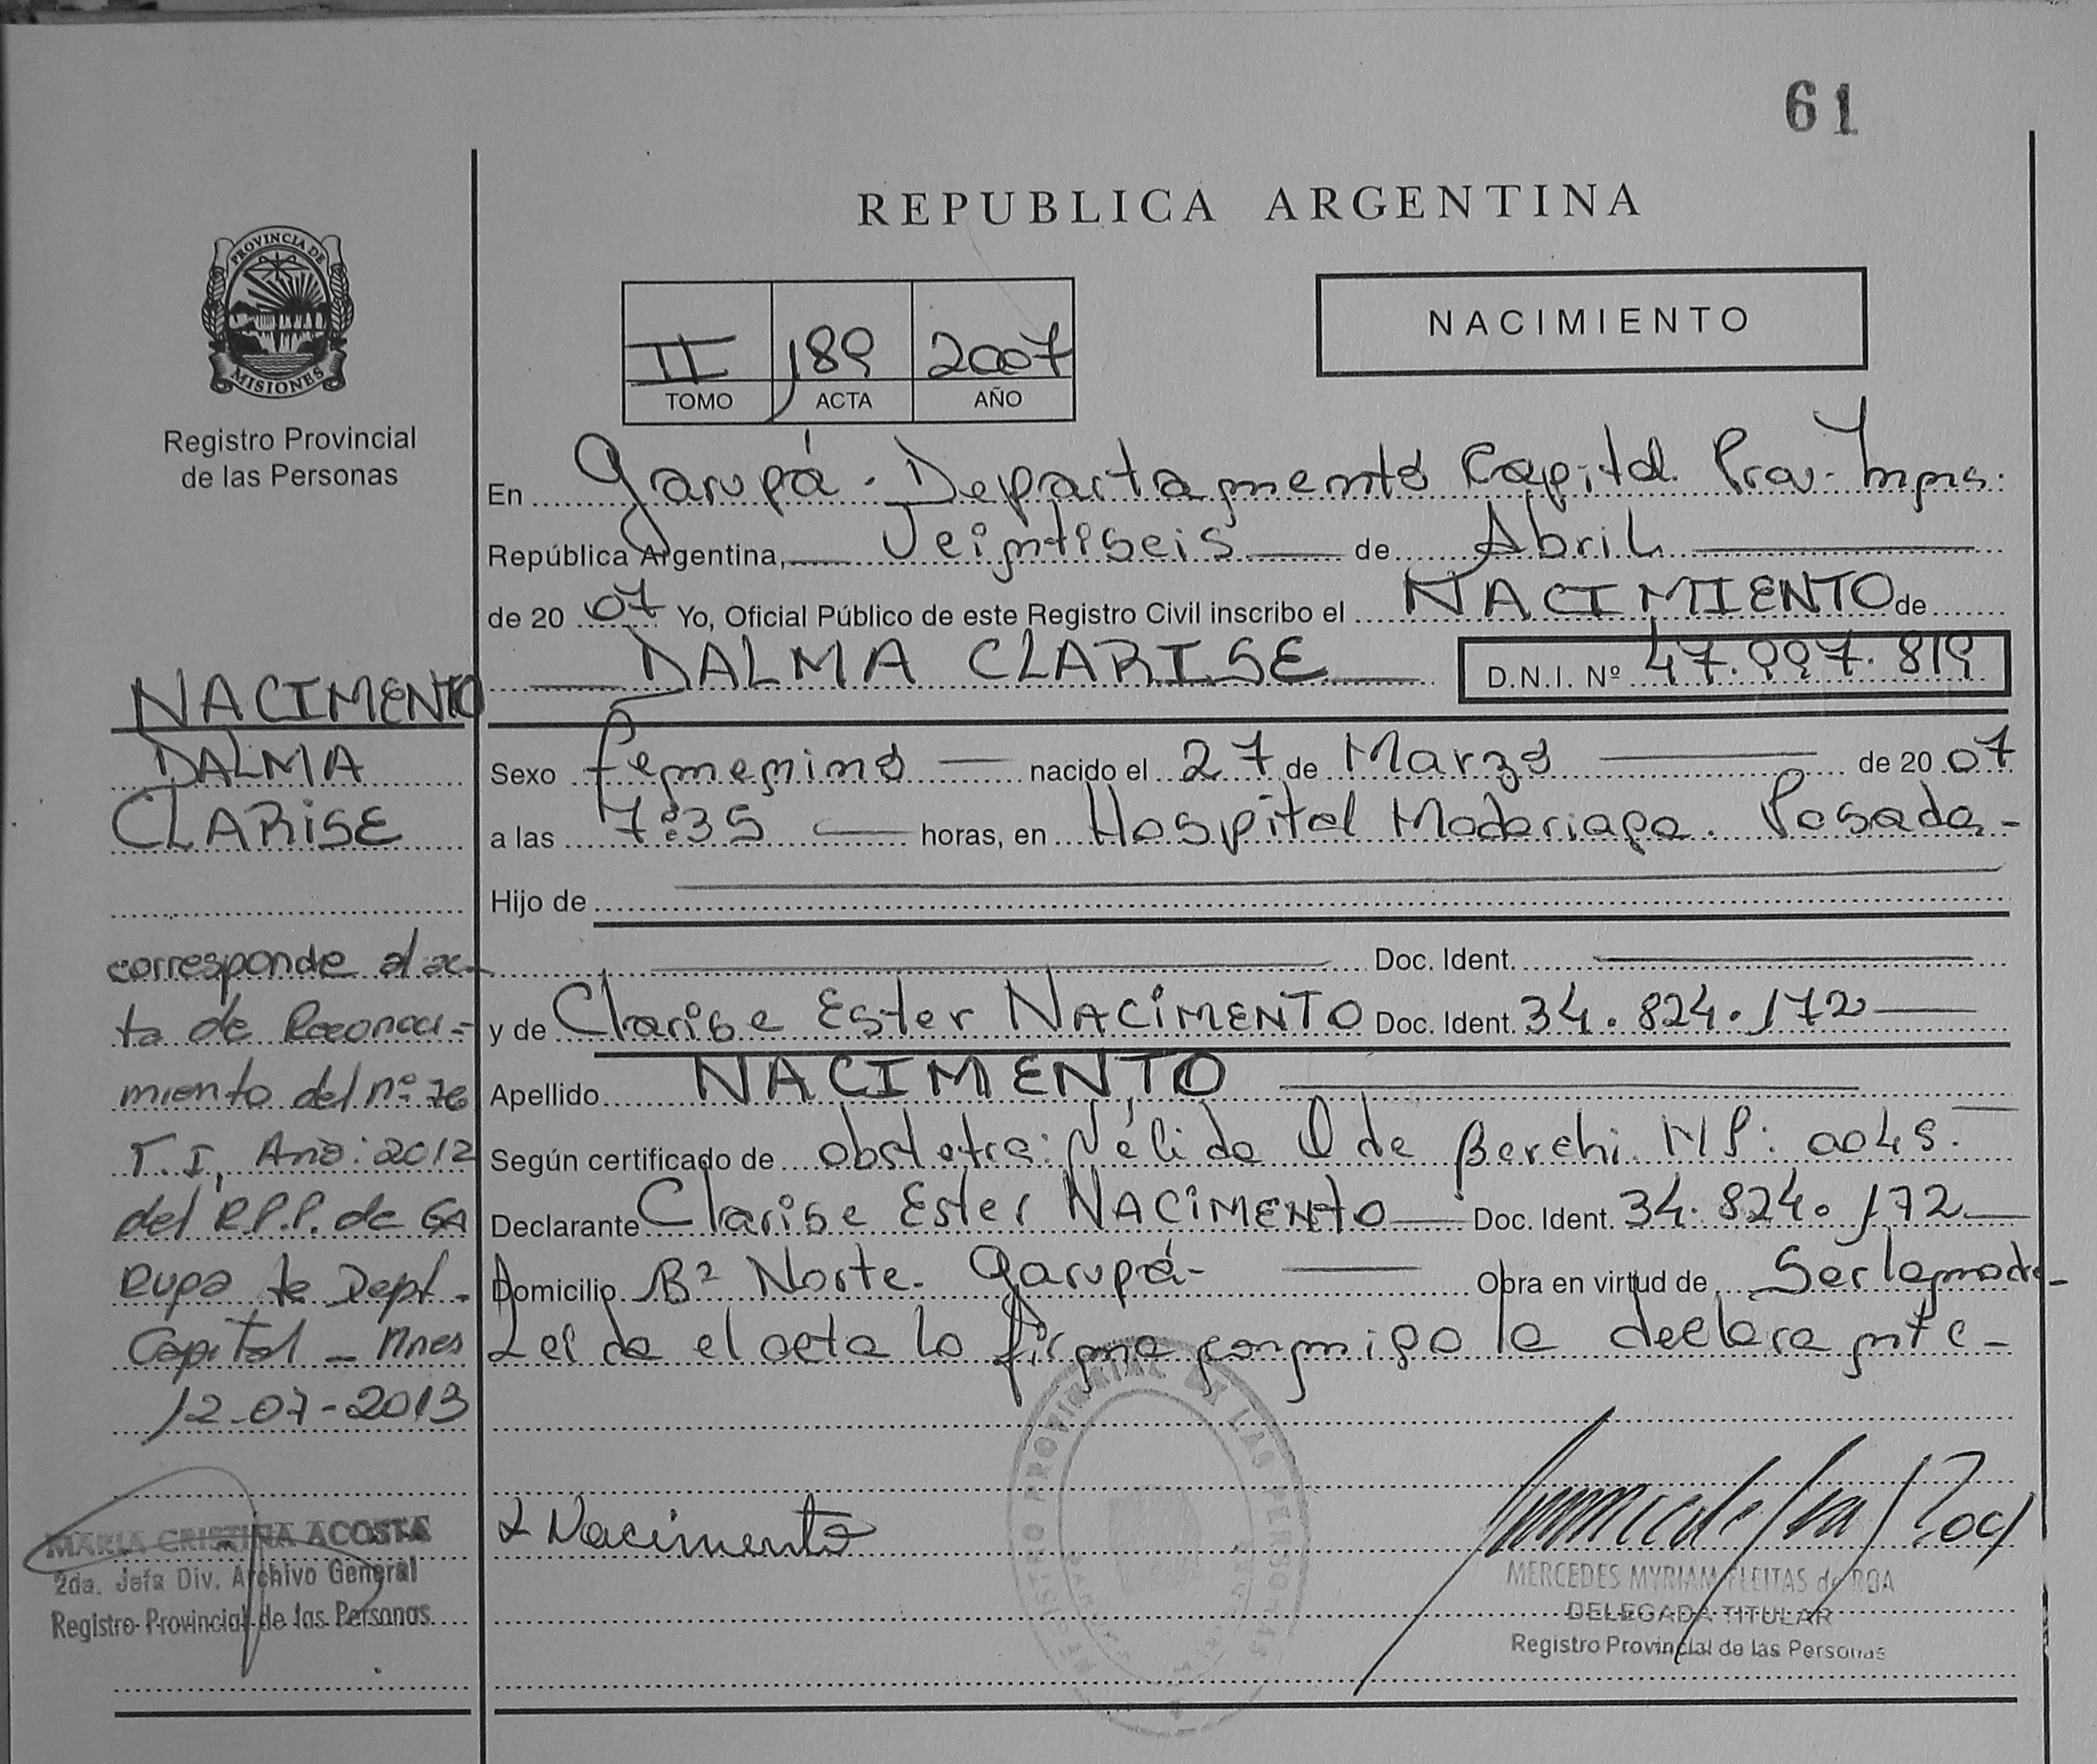 61
REPUBLICA ARGENTINA
PROVINCIA DE
MISIONES
Registro Provincial
de las Personas
NACIMIENTO
II 189 2007
TOMO ACTA AÑO
En Garupá. Departamento Capital. Prov. Mnes.
República Argentina, Veintiseis de Abril
de 20 07 Yo, Oficial Público de este Registro Civil inscribo el NACIMIENTO de
DALMA CLARISE D.N.I. Nº 47.997.819
Sexo femenino nacido el 27 de Marzo de 20 07
a las 7:35 horas, en Hospital Madariaga. Posadas-
Hijo de
Doc. Ident.
y de Clarise Ester NACIMENTO Doc. Ident. 34.824.172
Apellido NACIMENTO
Según certificado de obstetra: Nélida de Berchi. MP: 0045.
Declarante Clarise Ester NACIMENTO Doc. Ident. 34.824.172
Domicilio Bº Norte. Garupá- Obra en virtud de Ser la madre-
Leida el acta la firma conmigo la declarante-
NACIMENTO
DALMA
CLARISE
corresponde al ac-
ta de Reconoci-
miento del nº 76
T. I, Año: 2012
del R.P.P. de GA
Rupa, te Dept.
Capital - Mnes
12-07-2013
MARIA CRISTINA ACOSTA
2da. Jefa Div. Archivo General
Registro Provincial de las Personas
Nacimento
REGISTRO PROVINCIAL DE LAS PERSONAS
MERCEDES MYRIAM FLEITAS de ROA
DELEGADA TITULAR
Registro Provincial de las Personas